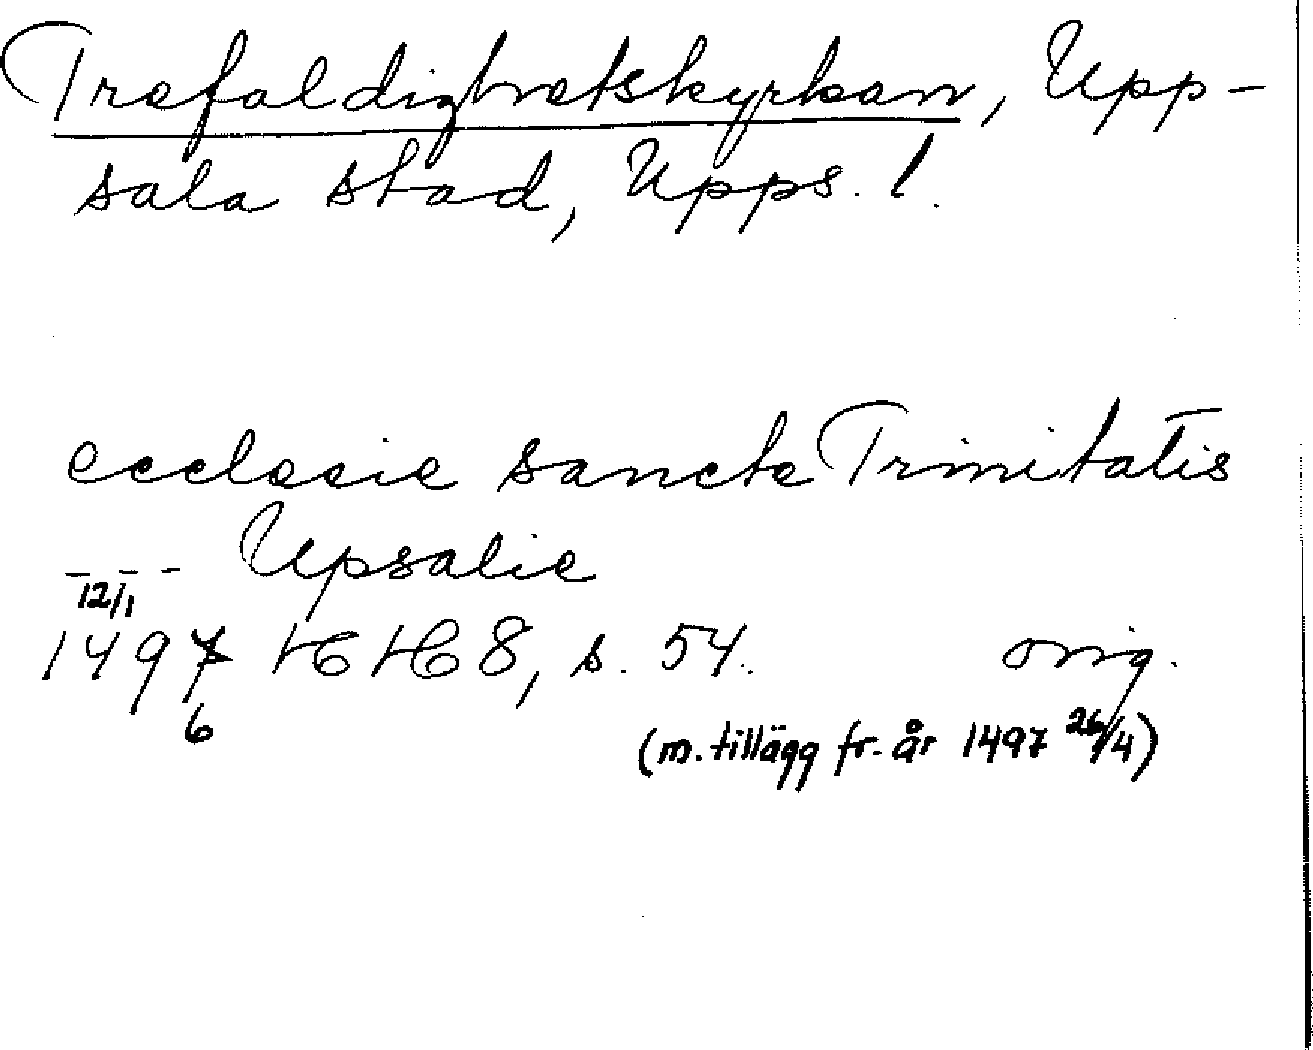 Trefaldighetskyrkan, Upp-
sala stad, Upps. l.
ecclesie sancte Trinitatis
Upsalie
- - - 12/1
1497 HH 8, s. 54. orig.
6
(m. tillägg fr. år 1497 26/4)